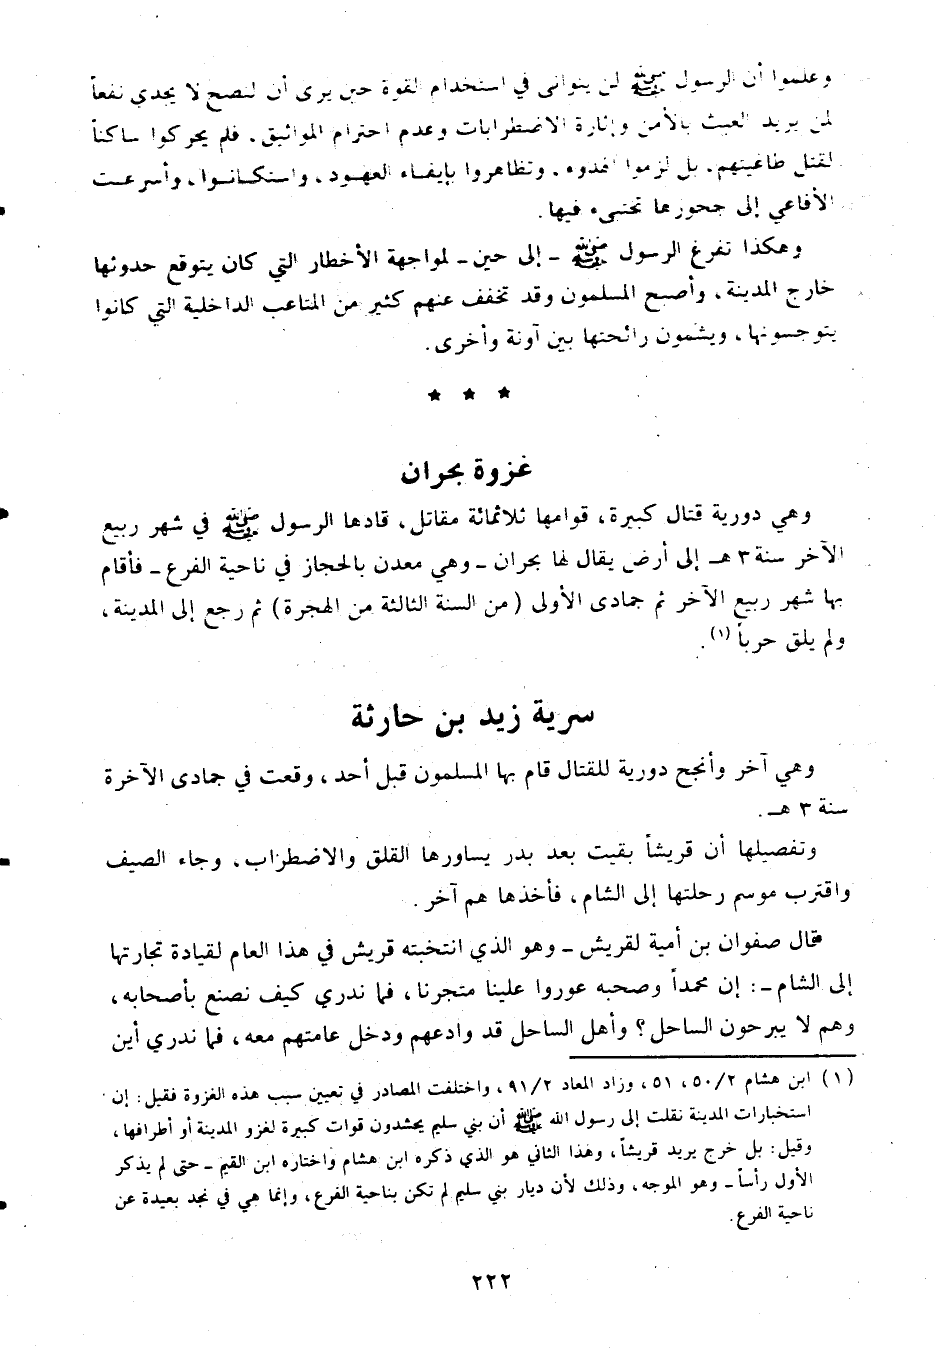 وعلموا أن الرسول ﷺ لن يتوانى في استخدام القوة حين يرى أن النصح لا يجدي نفعاً
لمن يريد العبث بالأمن وإثارة الاضطرابات وعدم احترام المواثيق. فلم يحركوا ساكناً
لقتل طاغيتهم. بل لزموا الهدوء. وتظاهروا بإيفاء العهود، واستكانوا، وأسرعت
الأفاعي إلى جحورها تختبىء فيها.
وهكذا تفرغ الرسول ﷺ ـ إلى حين ـ لمواجهة الأخطار التي كان يتوقع حدوثها
خارج المدينة، وأصبح المسلمون وقد تخفف عنهم كثير من المتاعب الداخلية التي كانوا
يتوجسونها، ويشمون رائحتها بين آونة وأخرى.
★ ★ ★
غزوة بحران
وهي دورية قتال كبيرة، قوامها ثلاثمائة مقاتل، قادها الرسول ﷺ في شهر ربيع
الآخر سنة ٣ هـ إلى أرض يقال لها بحران ـ وهي معدن بالحجاز في ناحية الفرع ـ فأقام
بها شهر ربيع الآخر ثم جمادى الأولى (من السنة الثالثة من الهجرة) ثم رجع إلى المدينة،
ولم يلق حرباً (١).
سرية زيد بن حارثة
وهي آخر وأنجح دورية للقتال قام بها المسلمون قبل أحد، وقعت في جمادى الآخرة
سنة ٣ هـ.
وتفصيلها أن قريشاً بقيت بعد بدر يساورها القلق والاضطراب، وجاء الصيف
واقترب موسم رحلتها إلى الشام، فأخذها هم آخر.
قال صفوان بن أمية لقريش ـ وهو الذي انتخبته قريش في هذا العام لقيادة تجارتها
إلى الشام ـ: إن محمداً وصحبه عوروا علينا متجرنا، فما ندري كيف نصنع بأصحابه،
وهم لا يبرحون الساحل؟ وأهل الساحل قد وادعهم ودخل عامتهم معه، فما ندري أين
(١) ابن هشام ٥٠/٢، ٥١، وزاد المعاد ٩١/٢، واختلفت المصادر في تعيين سبب هذه الغزوة فقيل: إن
استخبارات المدينة نقلت إلى رسول الله ﷺ أن بني سليم يحشدون قوات كبيرة لغزو المدينة أو أطرافها،
وقيل: بل خرج يريد قريشاً، وهذا الثاني هو الذي ذكره ابن هشام واختاره ابن القيم ـ حتى لم يذكر
الأول رأساً ـ وهو الموجه، وذلك لأن ديار بني سليم لم تكن بناحية الفرع، وإنما هي في نجد بعيدة عن
ناحية الفرع.
٢٢٢